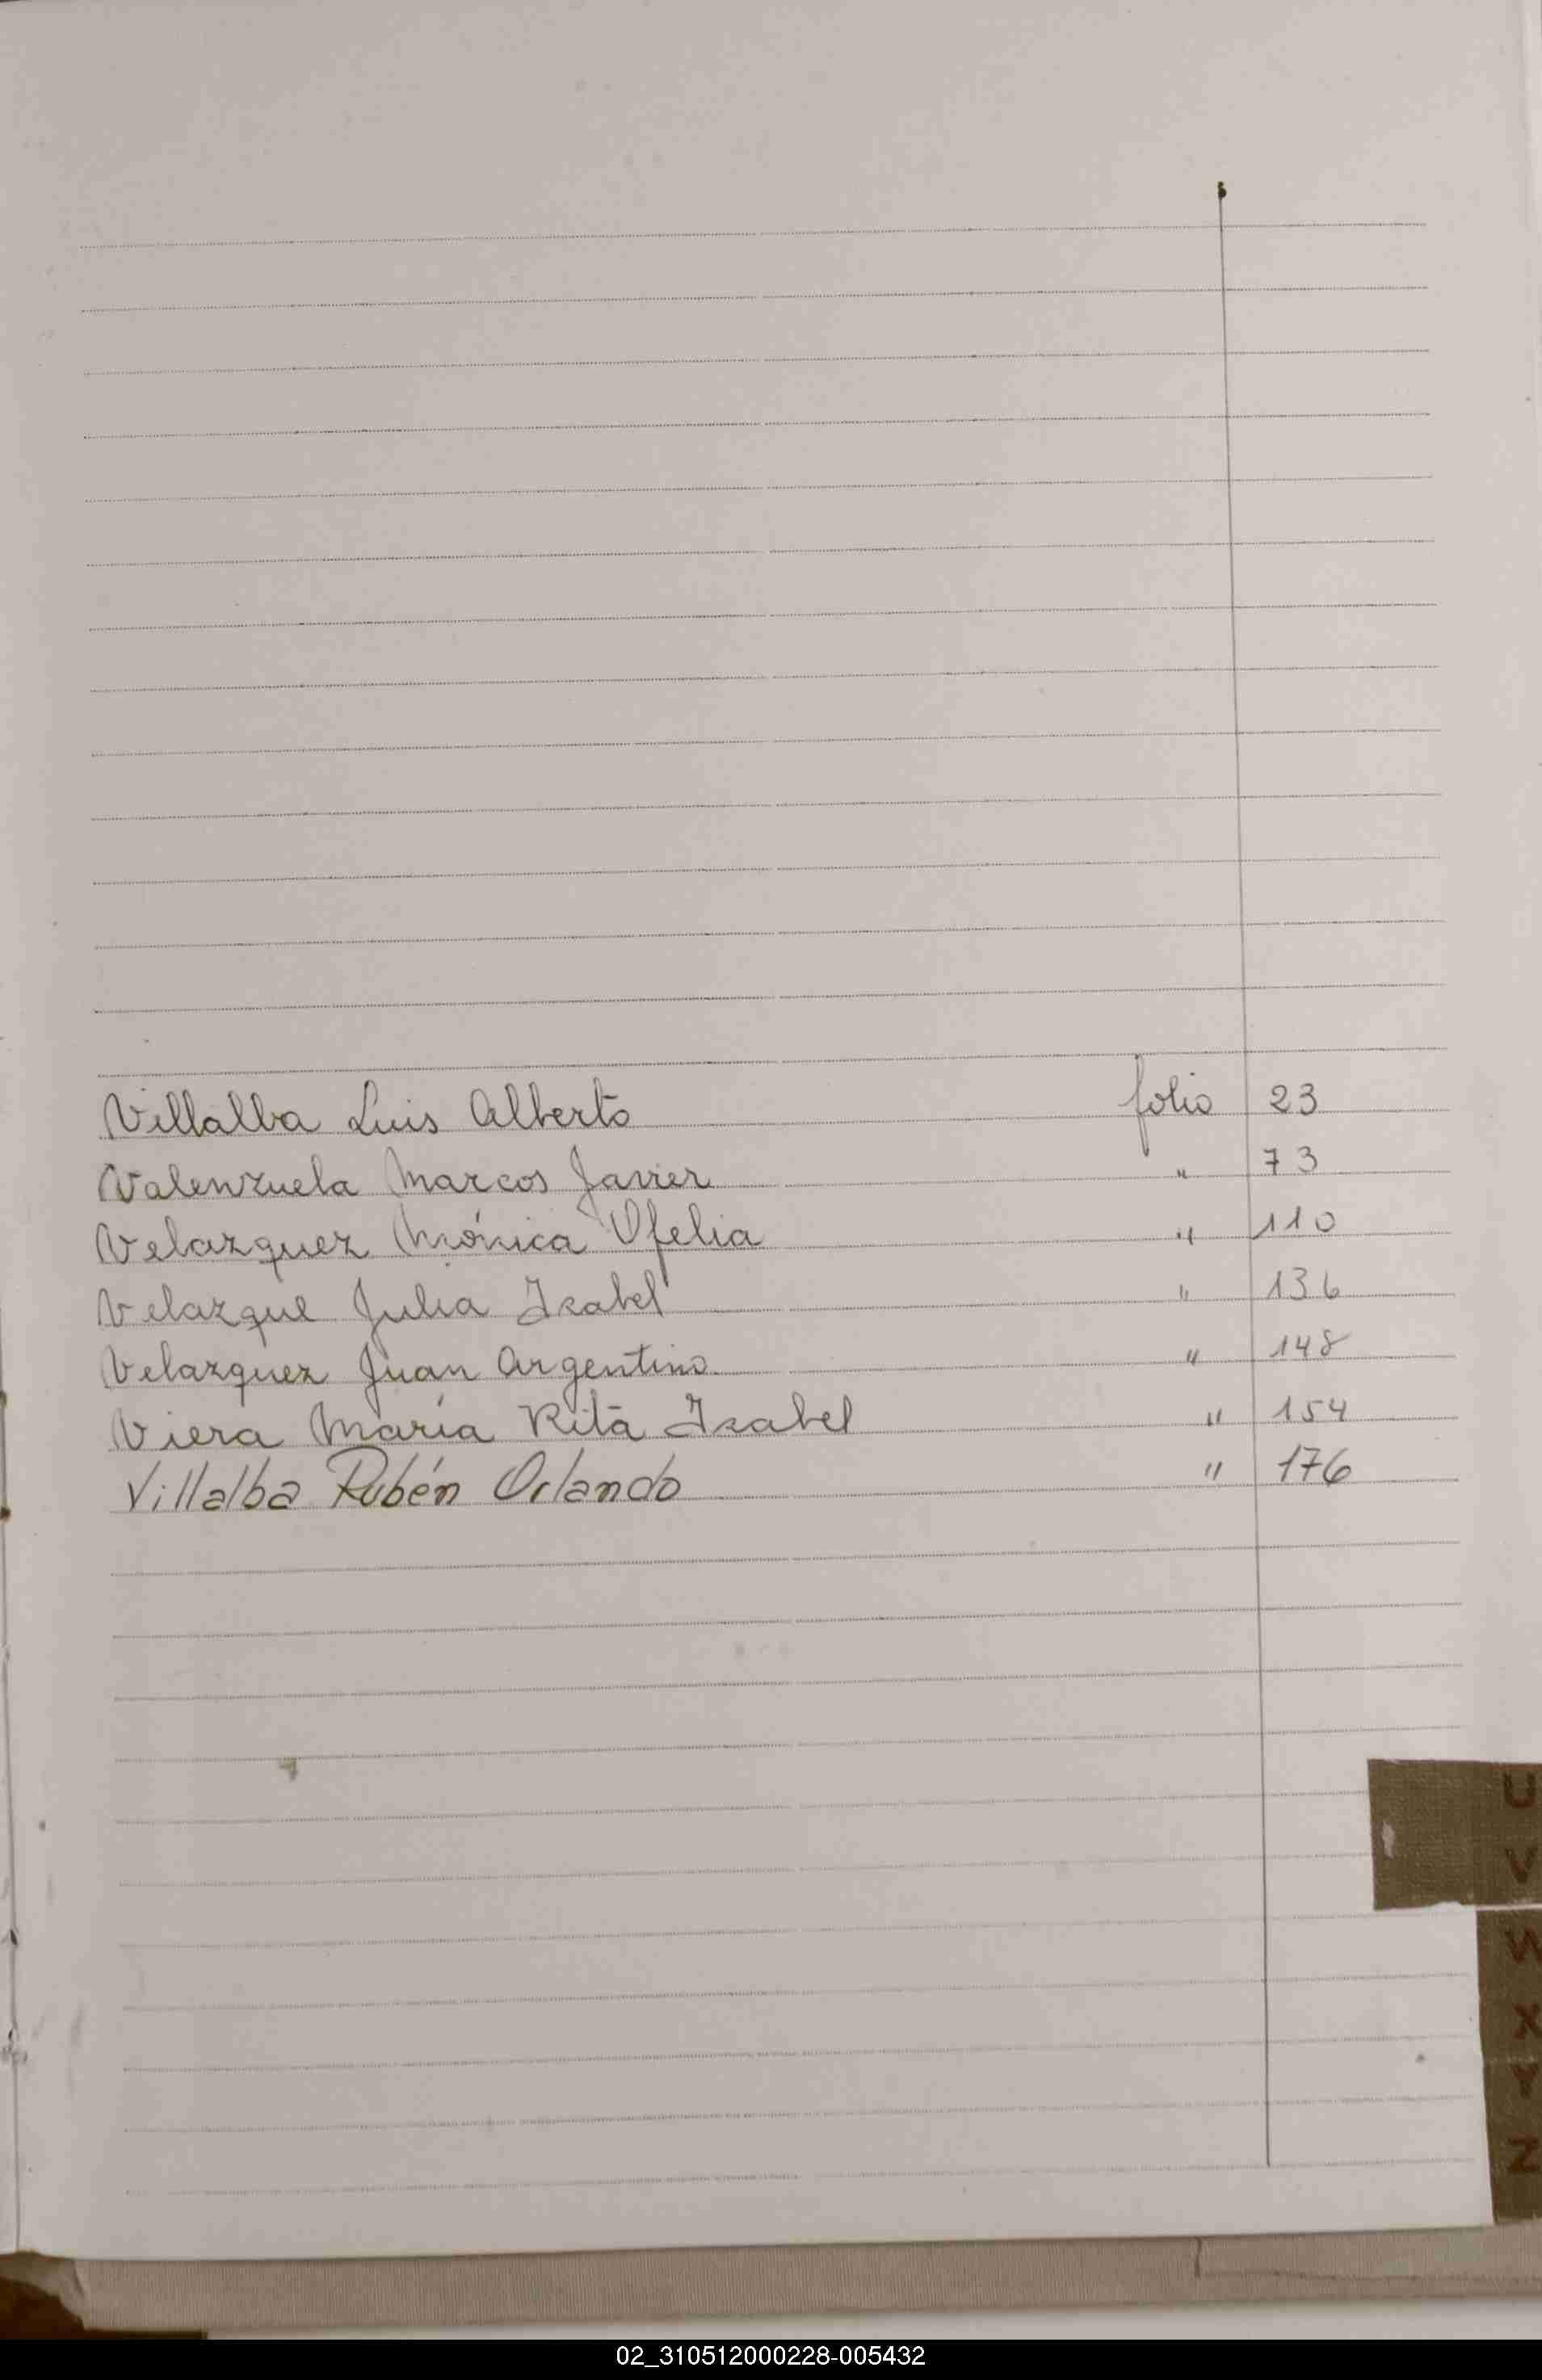 Villalba Luis Alberto folio 23
Valenzuela Marcos Javier " 73
Velazquez Mónica Ofelia " 110
Velazque Julia Isabel " 136
Velazquez Juan Argentino " 148
Viera María Rita Isabel " 154
Villalba Rubén Orlando " 176
U
V
W
X
Y
Z
02_310512000228-005432